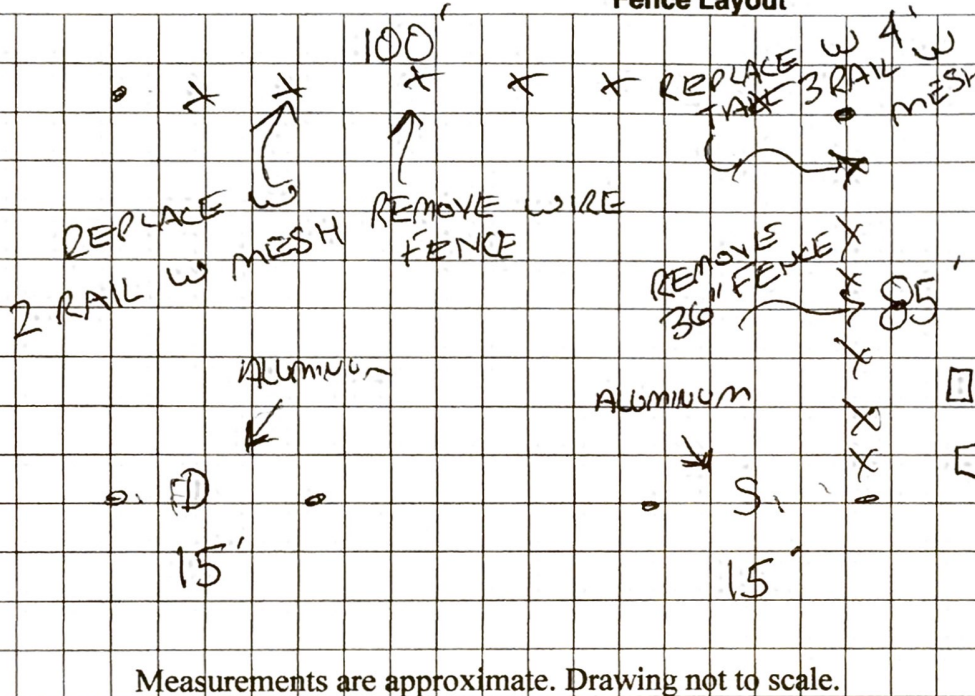 Fence Layout
100'
REPLACE W 4' W
3 RAIL
MESH
REPLACE W
2 RAIL W MESH
REMOVE WIRE
FENCE
REMOVE
36" FENCE
85'
ALUMINUM
ALUMINUM
D
S
15'
15'
Measurements are approximate. Drawing not to scale.